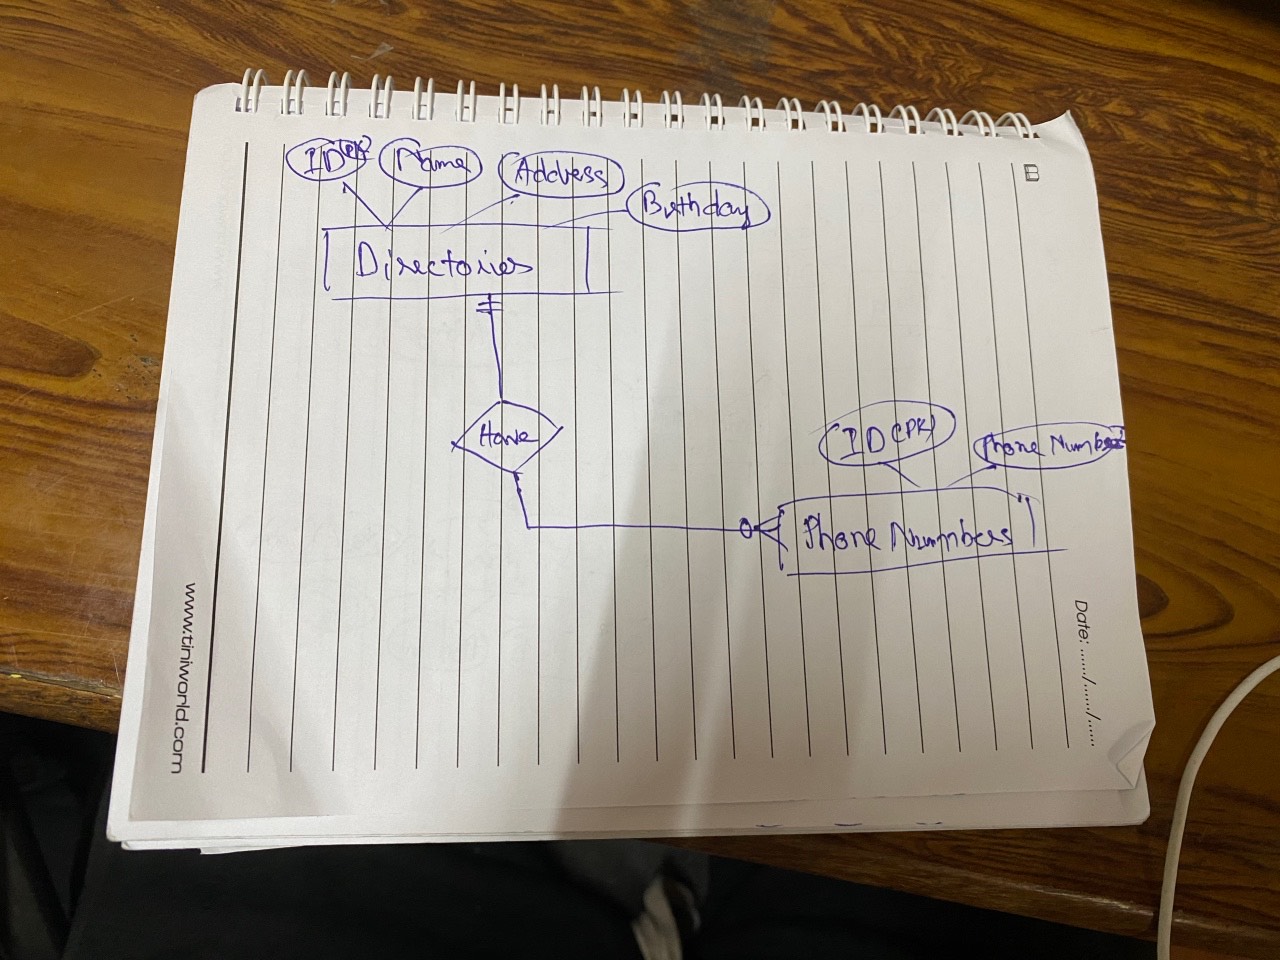 ID (PK)
Name
Address
Birthday
Directories
Have
ID (PK)
Phone Number
Phone Numbers
www.tiniworld.com
Date: ....../....../......